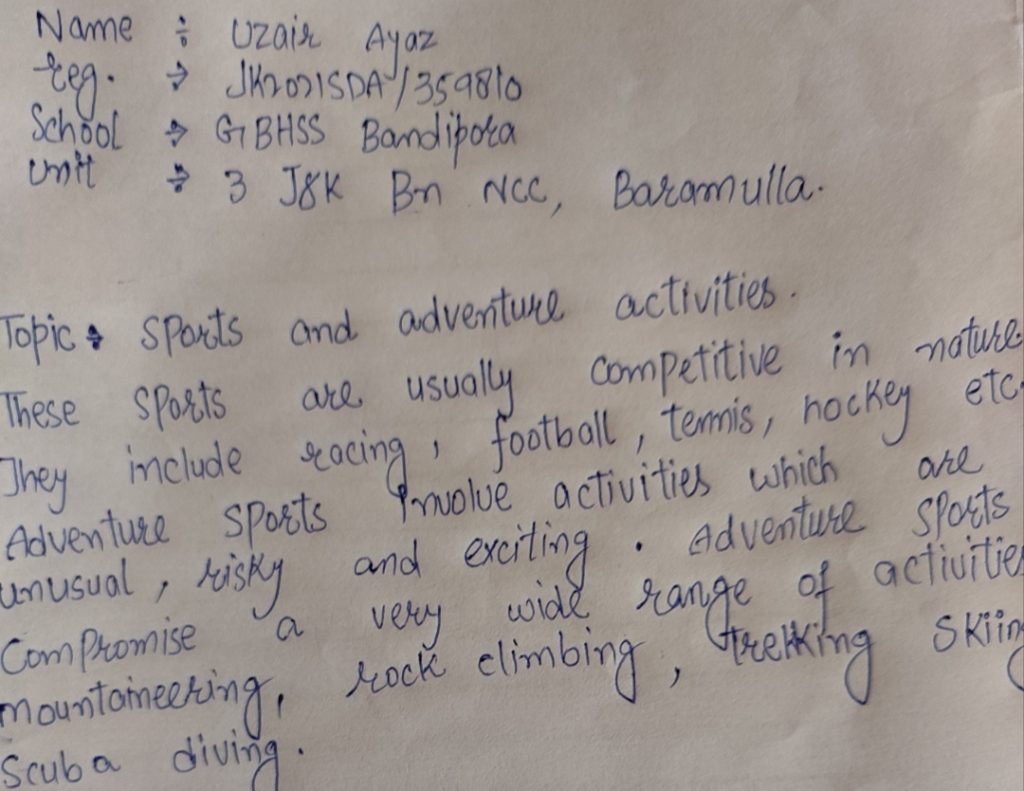 Name ÷ Uzair Ayaz
reg. → JK2021SDA/359810
School → GBHSS Bandipora
Unit → 3 J&K Bn NCC, Baramulla.
Topic : Sports and adventure activities.
These sports are usually competitive in nature.
They include racing, football, tennis, hockey etc.
Adventure sports Involve activities which are
unusual, risky and exciting. Adventure sports
Compromise a very wide range of activities
mountaineering, rock climbing, trekking Skiing
Scuba diving.